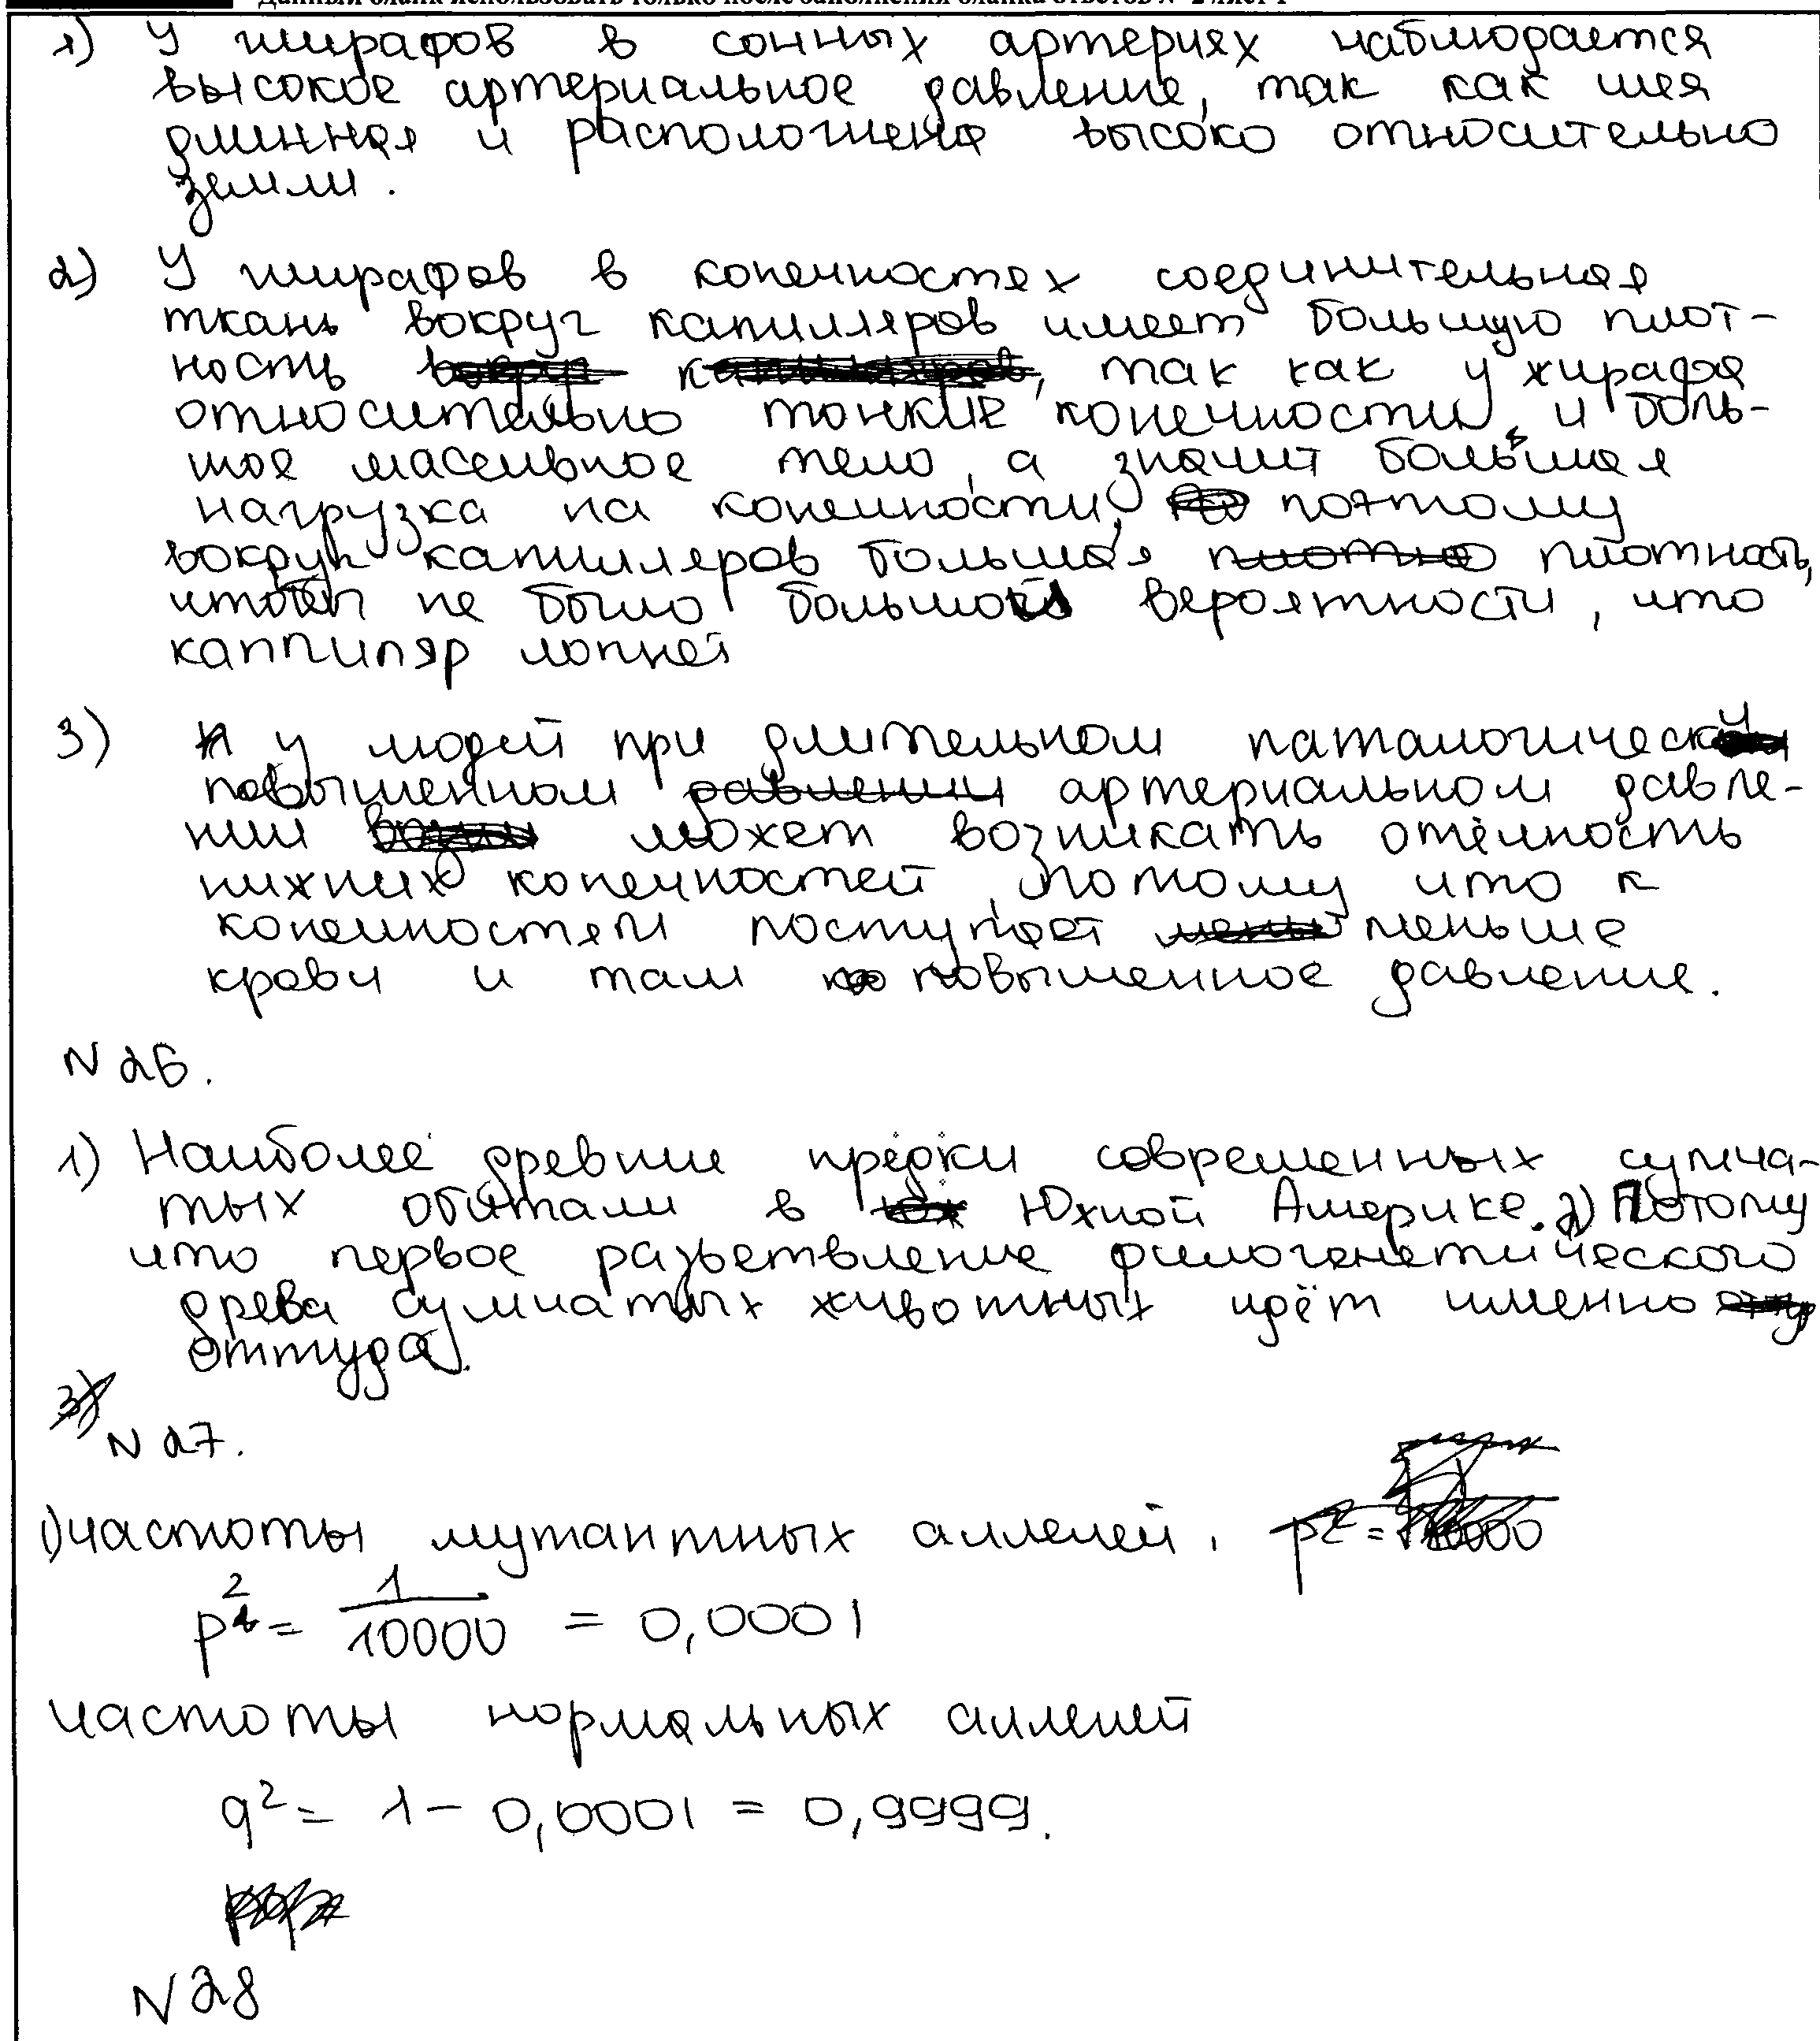 Данный бланк использовать только после заполнения бланка ответов № 2 лист 1
1) У жирафов в сонных артериях наблюдается
высокое артериальное давление, так как шея
длинная и расположена высоко относительно
земли.
2) У жирафов в конечностях соединительная
ткань вокруг капилляров имеет большую плот-
ность, так как у жирафа
относительно тонкие конечности и боль-
шое массивное тело, а значит большая
нагрузка на конечности, поэтому
вокруг капилляров большая плотность,
чтобы не было большой вероятности, что
каппиляр лопнет
3) у людей при длительном патологически
повышенном артериальном давле-
нии может возникать отёчность
нижних конечностей, потому что к
конечностям поступает меньше
крови и там повышенное давление.
N 26.
1) Наиболее древние предки современных сумча-
тых обитали в Южной Америке. 2) Потому
что первое разветвление филогенетического
древа сумчатых животных идёт именно
оттуда.
N 27.
1) частоты мутантных аллелей.
p² = 1/10000 = 0,0001
частоты нормальных аллелей
q² = 1 - 0,0001 = 0,9999.
N 28